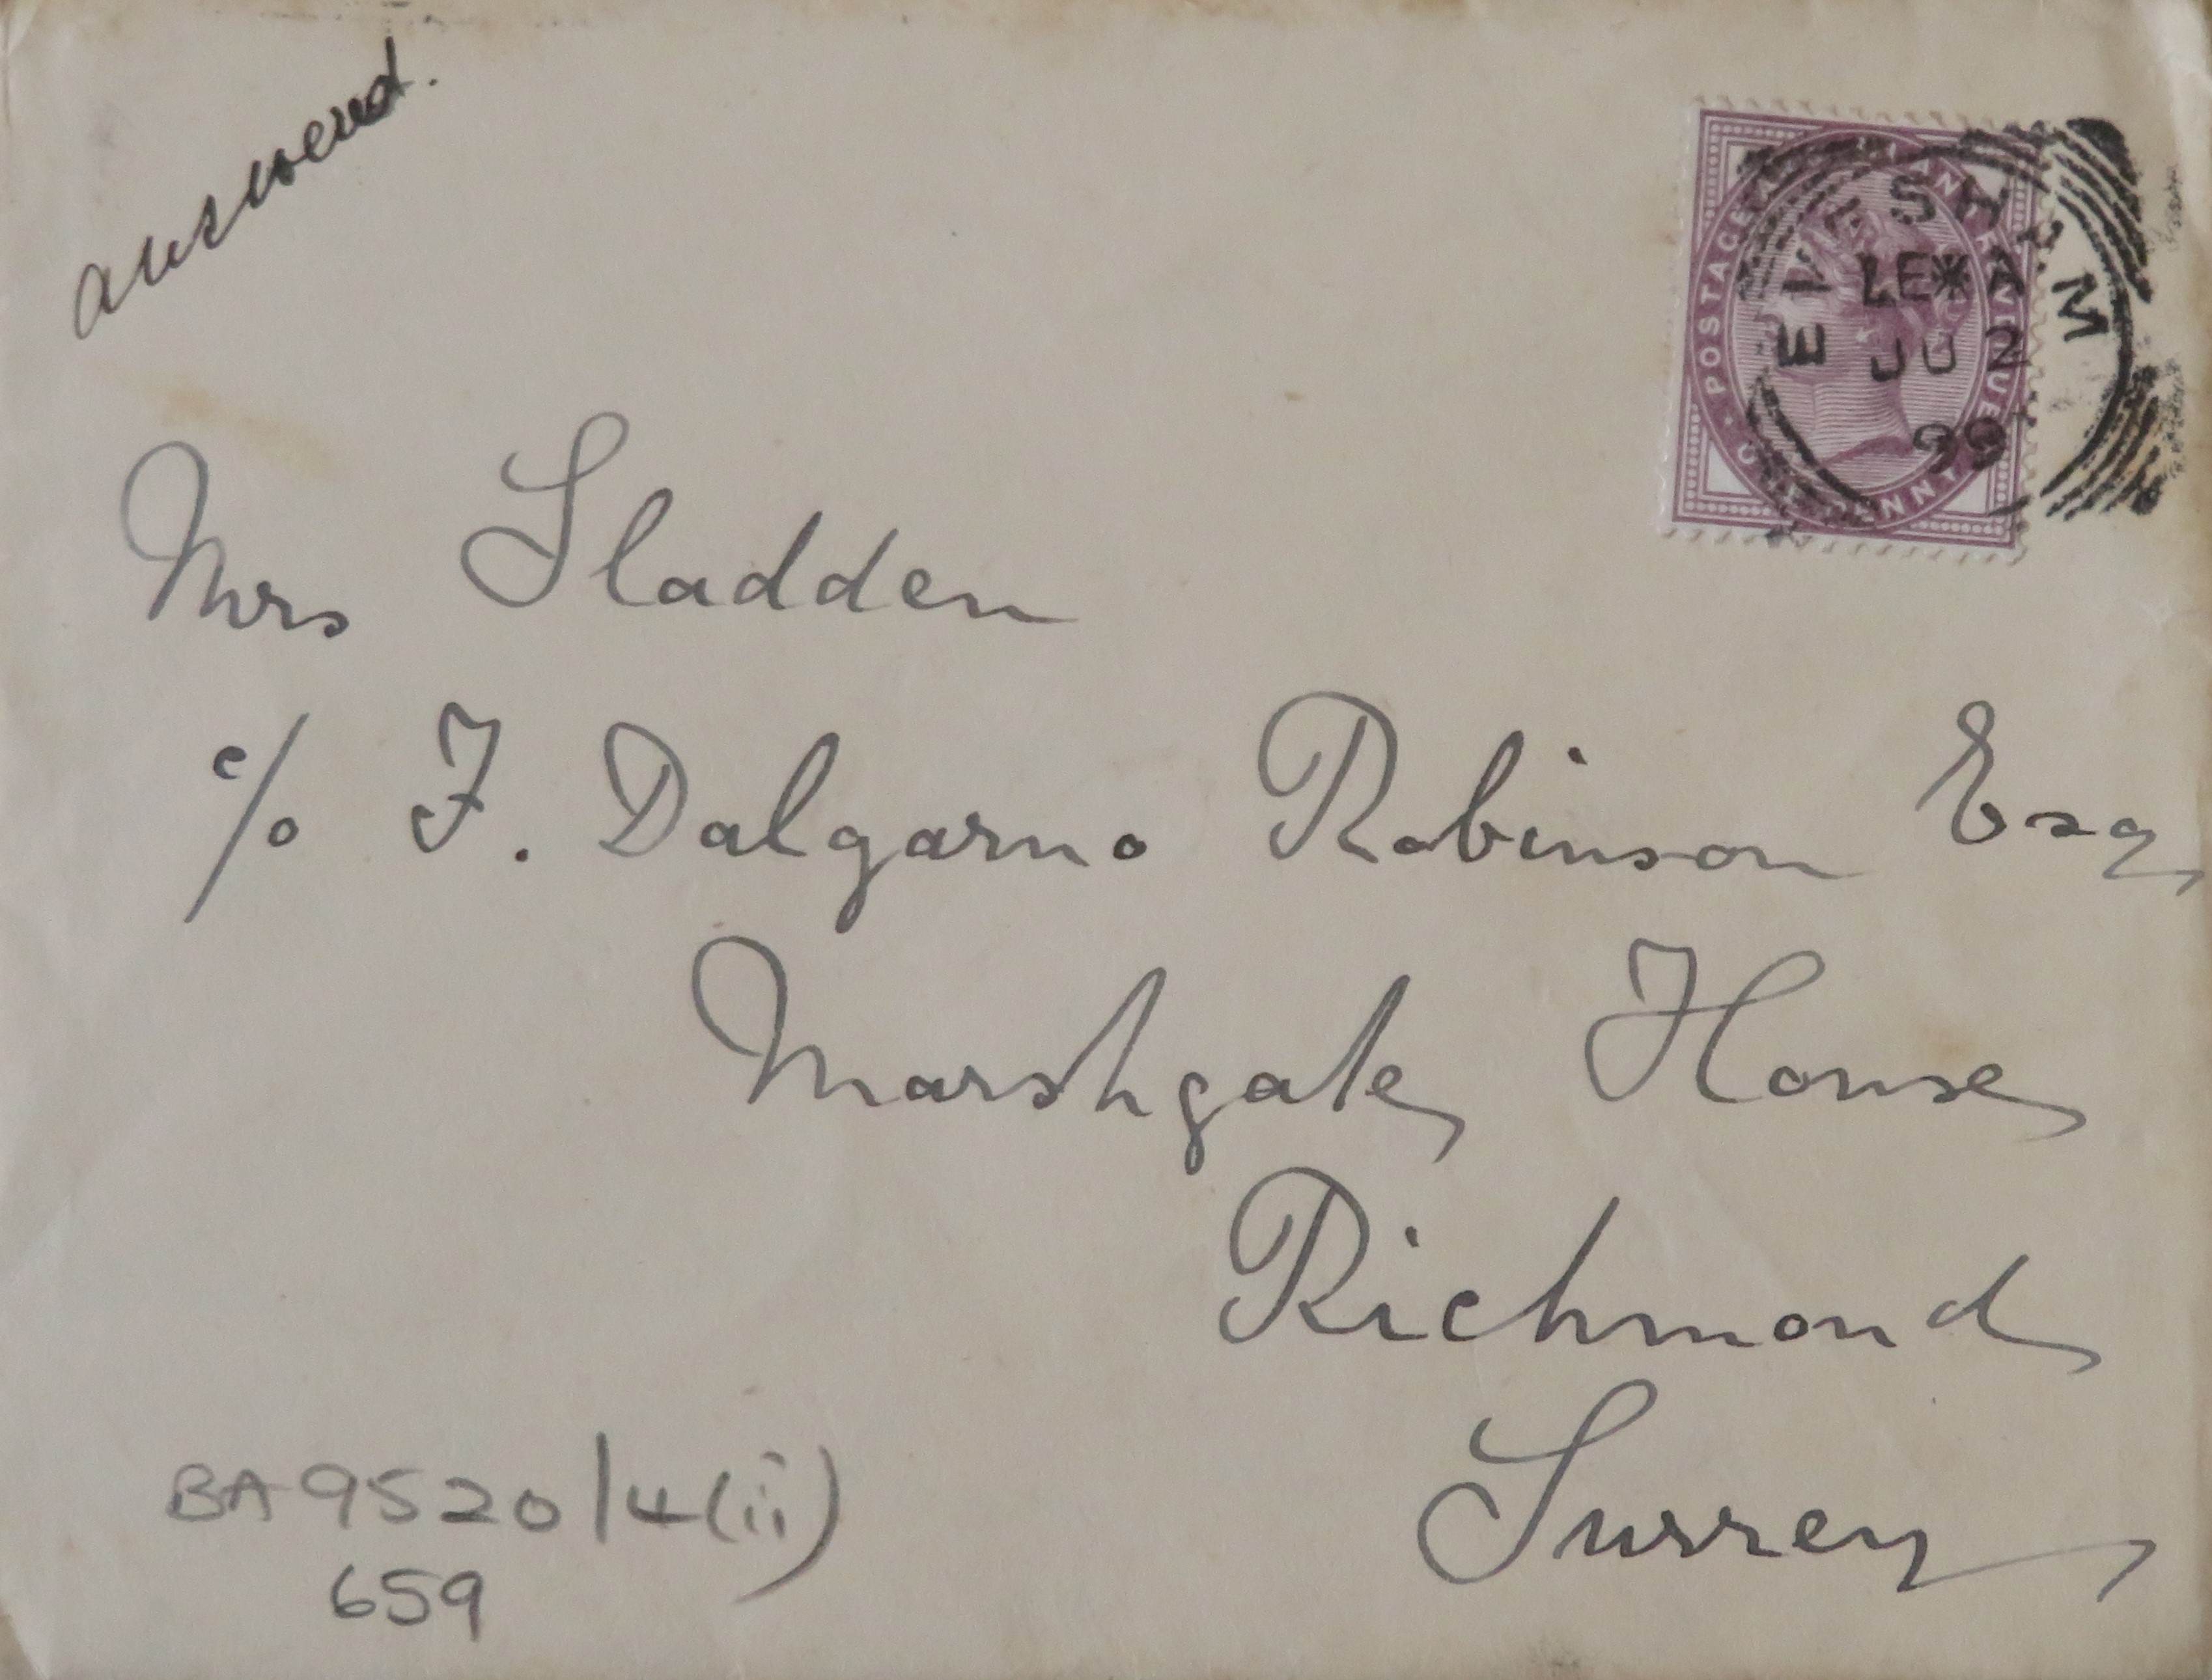 answered.
POSTAGE AND REVENUE
ONE PENNY
EVESHAM
LE*A
JU 2
99
Mrs Sladden
c/o F. Dalgarno Robinson Esq
Marshgate House
Richmond
Surrey
BA 9520/4(ii)
659